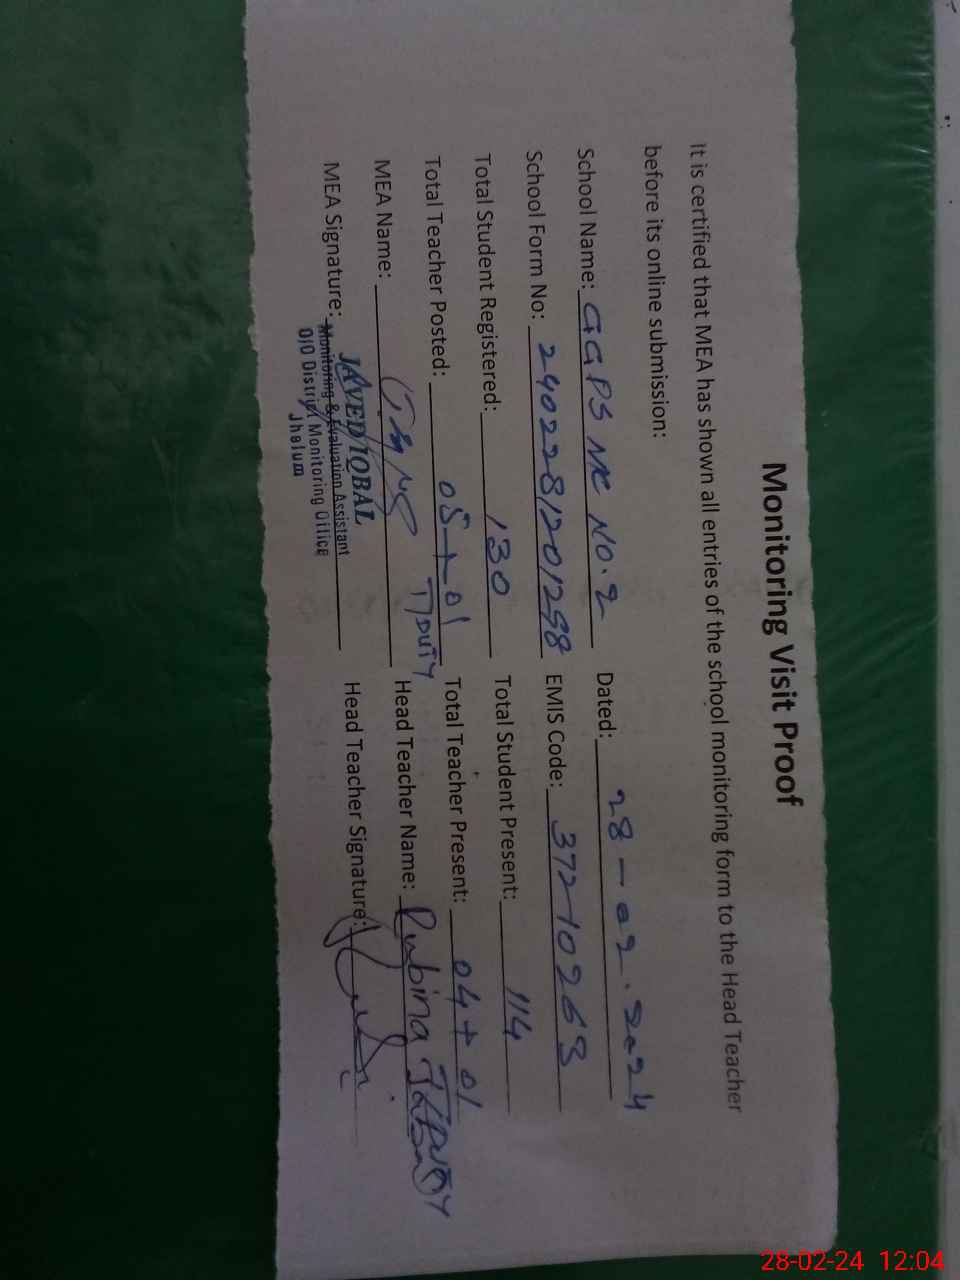 Monitoring Visit Proof
It is certified that MEA has shown all entries of the school monitoring form to the Head Teacher
before its online submission:
School Name: GGPS NK No.2 Dated: 28-02.2024
School Form No: 2402281201298 EMIS Code: 37210263
Total Student Registered: 130 Total Student Present: 114
Total Teacher Posted: 05+01 T/DUTY Total Teacher Present: 04+01 T/DUTY
MEA Name: Head Teacher Name: Rubina
MEA Signature: Head Teacher Signature:
JAVED IQBAL
Monitoring & Evaluation Assistant
O/O District Monitoring Office
Jhelum
28-02-24 12:04